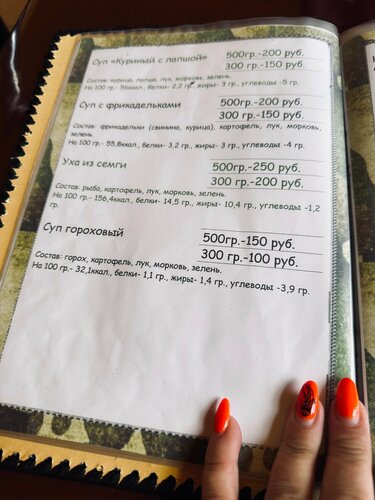 Суп «Куриный с лапшой» 500гр.-200 руб.
300 гр.-150 руб.
Состав: курица, лапша, лук, морковь, зелень.
На 100 гр.- 56ккал, белки- 2,2 гр., жиры- 3 гр., углеводы -5 гр.
Суп с фрикадельками 500гр.-200 руб.
300 гр.-150 руб.
Состав: фрикадельки (свинина, курица), картофель, лук, морковь,
зелень.
На 100 гр.- 55,8ккал., белки- 3,2 гр., жиры- 3 гр., углеводы -4 гр.
Уха из семги 500гр.-250 руб.
300 гр.-200 руб.
Состав: рыба, картофель, лук, морковь, зелень.
На 100 гр.- 156,4ккал., белки- 14,5 гр., жиры- 10,4 гр., углеводы -1,2
гр.
Суп гороховый 500гр.-150 руб.
300 гр.-100 руб.
Состав: горох, картофель, лук, морковь, зелень.
На 100 гр.- 32,1ккал., белки- 1,1 гр., жиры- 1,4 гр., углеводы -3,9 гр.